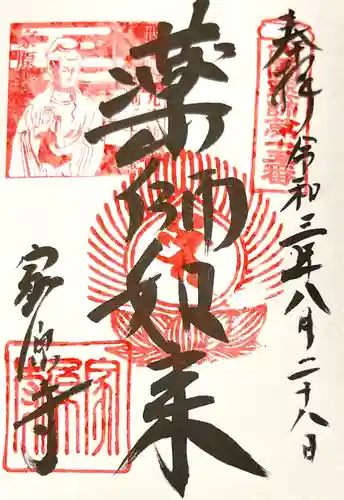 奉拝
令和三年八月二十八日
薬師如来
家原寺